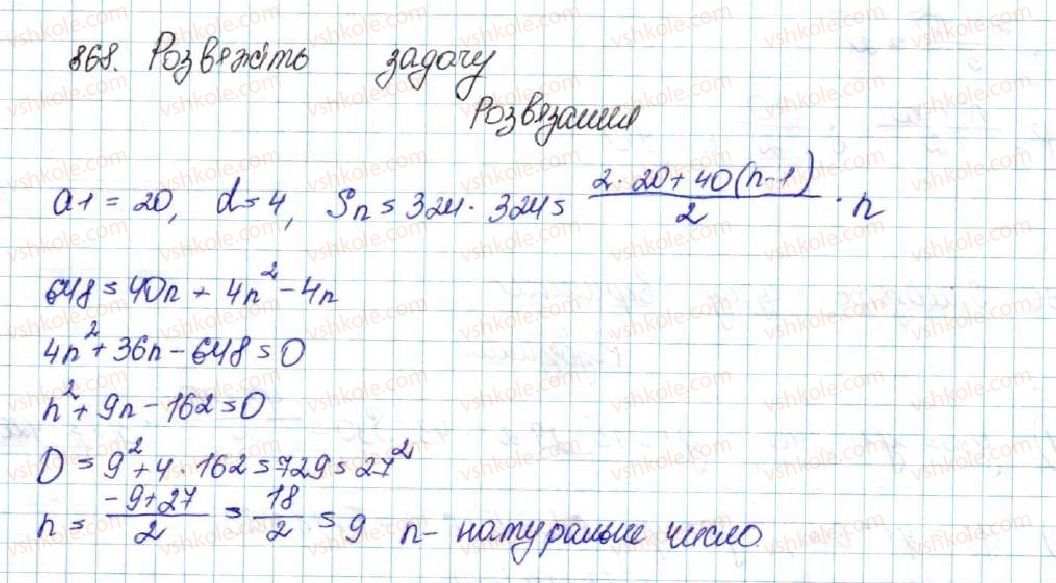 868. Розвяжіть задачу
Розвязання
a1 = 20, d = 4, Sn = 324. 324 = (2·20+40(n-1))/2 · n
648 = 40n + 4n² - 4n
4n² + 36n - 648 = 0
n² + 9n - 162 = 0
D = 9² + 4·162 = 729 = 27²
n = (-9+27)/2 = 18/2 = 9 n - натуральне число
vshkole.com